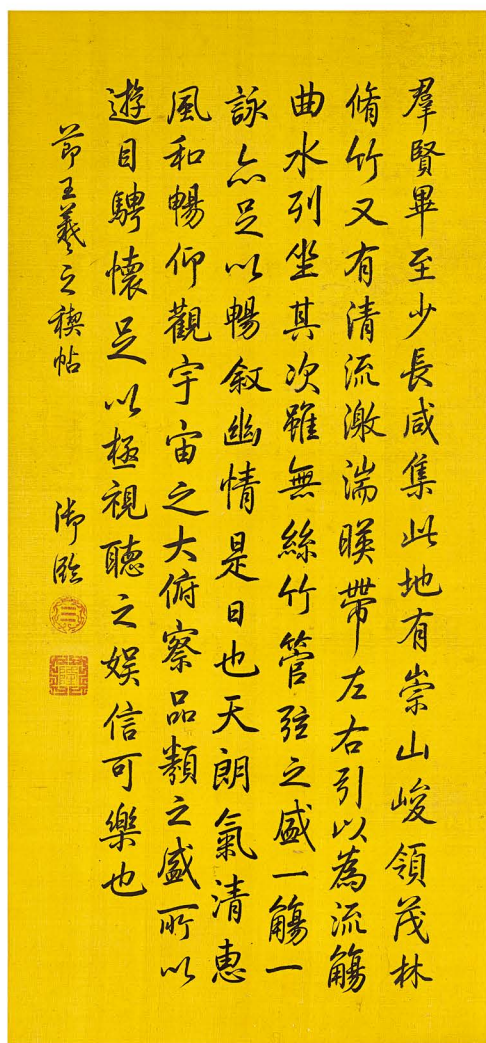 羣賢畢至少長咸集此地有崇山峻領茂林
脩竹又有清流激湍暎帶左右引以為流觴
曲水列坐其次雖無絲竹管弦之盛一觴一
詠亦足以暢敘幽情是日也天朗氣清惠
風和暢仰觀宇宙之大俯察品類之盛所以
遊目騁懷足以極視聽之娛信可樂也
節王羲之稧帖
御臨